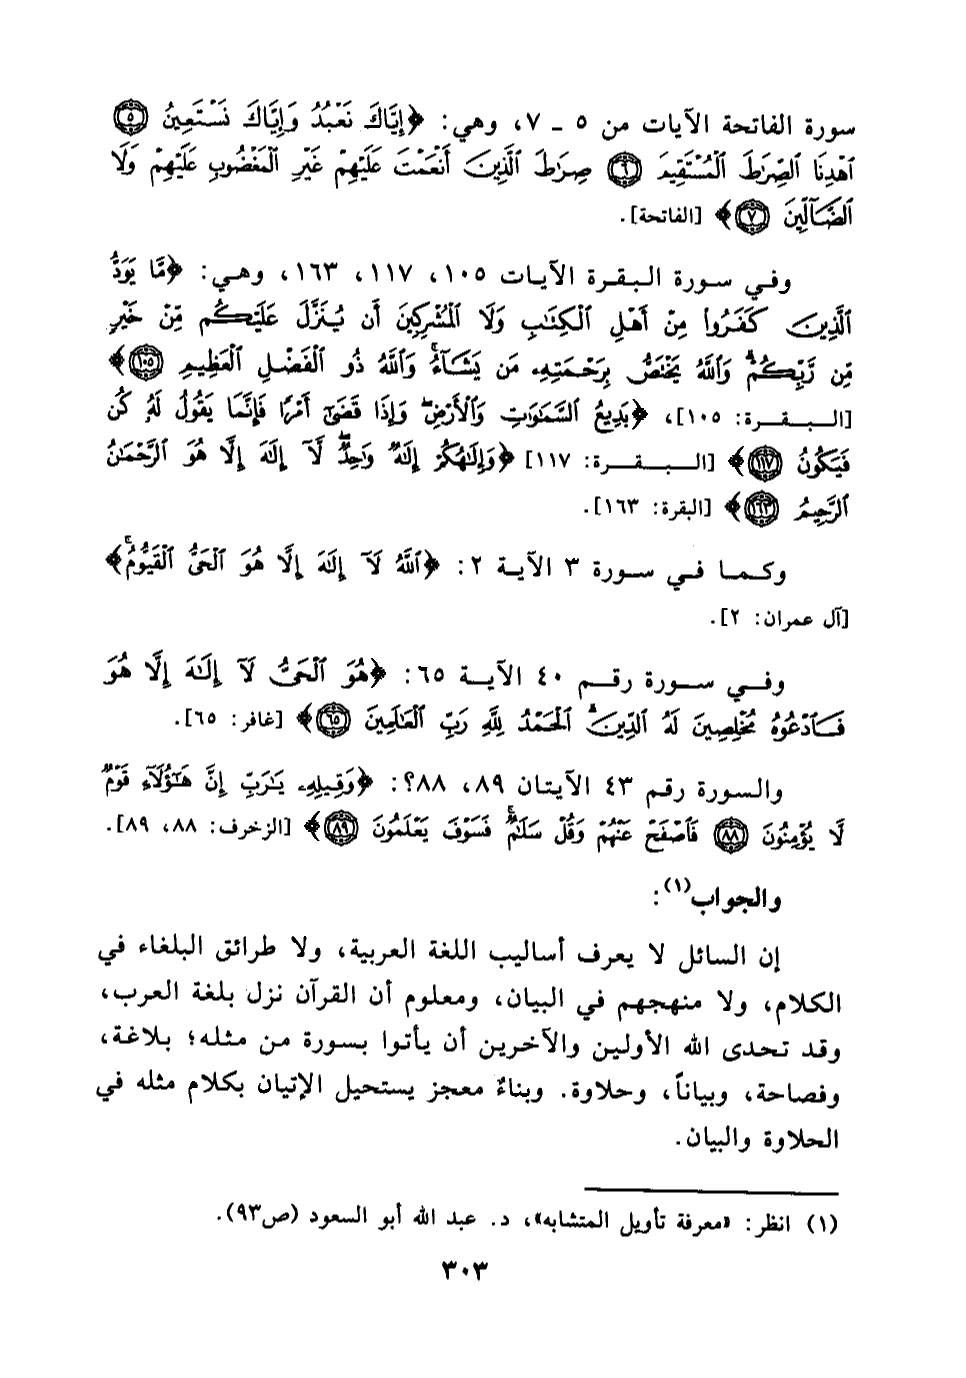 سورة الفاتحة الآيات من ٥ ـ ٧، وهي: ﴿إِيَّاكَ نَعْبُدُ وَإِيَّاكَ نَسْتَعِينُ ۝٥
ٱهْدِنَا ٱلصِّرَٰطَ ٱلْمُسْتَقِيمَ ۝٦ صِرَٰطَ ٱلَّذِينَ أَنْعَمْتَ عَلَيْهِمْ غَيْرِ ٱلْمَغْضُوبِ عَلَيْهِمْ وَلَا
ٱلضَّآلِّينَ ۝٧﴾ [الفاتحة].
وفي سورة البقرة الآيات ١٠٥، ١١٧، ١٦٣، وهي: ﴿مَّا يَوَدُّ
ٱلَّذِينَ كَفَرُوا۟ مِنْ أَهْلِ ٱلْكِتَٰبِ وَلَا ٱلْمُشْرِكِينَ أَن يُنَزَّلَ عَلَيْكُم مِّنْ خَيْرٍ
مِّن رَّبِّكُمْ ۗ وَٱللَّهُ يَخْتَصُّ بِرَحْمَتِهِۦ مَن يَشَآءُ ۚ وَٱللَّهُ ذُو ٱلْفَضْلِ ٱلْعَظِيمِ ۝١٠٥﴾
[البقرة: ١٠٥]، ﴿بَدِيعُ ٱلسَّمَٰوَٰتِ وَٱلْأَرْضِ ۖ وَإِذَا قَضَىٰٓ أَمْرًا فَإِنَّمَا يَقُولُ لَهُۥ كُن
فَيَكُونُ ۝١١٧﴾ [البقرة: ١١٧] ﴿وَإِلَٰهُكُمْ إِلَٰهٌ وَٰحِدٌ ۖ لَّآ إِلَٰهَ إِلَّا هُوَ ٱلرَّحْمَٰنُ
ٱلرَّحِيمُ ۝١٦٣﴾ [البقرة: ١٦٣].
وكما في سورة ٣ الآية ٢: ﴿ٱللَّهُ لَآ إِلَٰهَ إِلَّا هُوَ ٱلْحَىُّ ٱلْقَيُّومُ ۚ﴾
[آل عمران: ٢].
وفي سورة رقم ٤٠ الآية ٦٥: ﴿هُوَ ٱلْحَىُّ لَآ إِلَٰهَ إِلَّا هُوَ
فَٱدْعُوهُ مُخْلِصِينَ لَهُ ٱلدِّينَ ۗ ٱلْحَمْدُ لِلَّهِ رَبِّ ٱلْعَٰلَمِينَ ۝٦٥﴾ [غافر: ٦٥].
والسورة رقم ٤٣ الآيتان ٨٩، ٨٨؟: ﴿وَقِيلِهِۦ يَٰرَبِّ إِنَّ هَٰٓؤُلَآءِ قَوْمٌ
لَّا يُؤْمِنُونَ ۝٨٨ فَٱصْفَحْ عَنْهُمْ وَقُلْ سَلَٰمٌ ۚ فَسَوْفَ يَعْلَمُونَ ۝٨٩﴾ [الزخرف: ٨٨، ٨٩].
والجواب(١):
إن السائل لا يعرف أساليب اللغة العربية، ولا طرائق البلغاء في
الكلام، ولا منهجهم في البيان، ومعلوم أن القرآن نزل بلغة العرب،
وقد تحدى الله الأولين والآخرين أن يأتوا بسورة من مثله؛ بلاغة،
وفصاحة، وبياناً، وحلاوة. وبناءٌ معجز يستحيل الإتيان بكلام مثله في
الحلاوة والبيان.
(١) انظر: «معرفة تأويل المتشابه»، د. عبد الله أبو السعود (ص٩٣).
٣٠٣